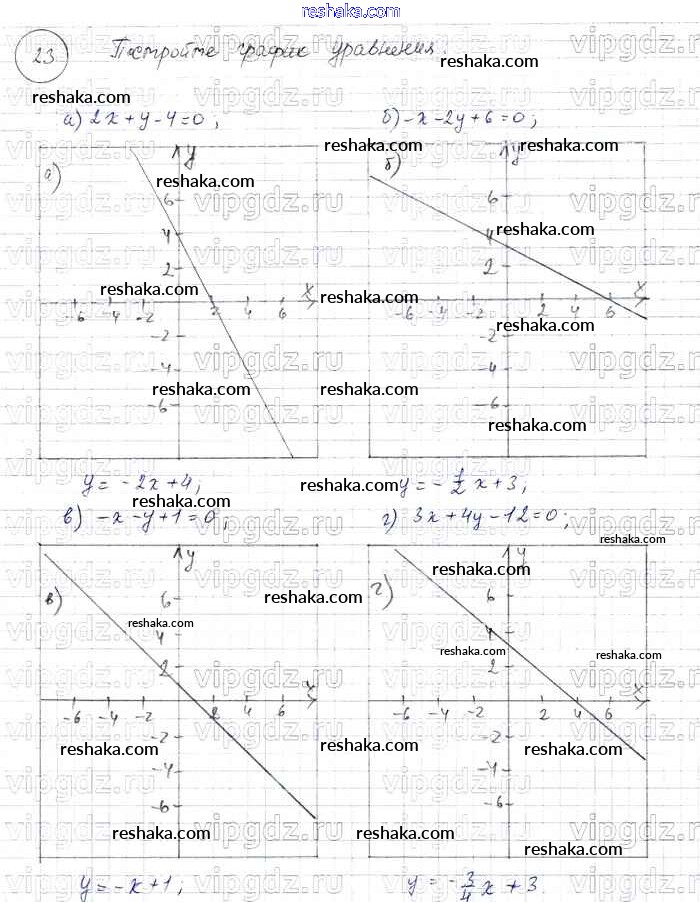 reshaka.com
23 Постройте график уравнения:
reshaka.com
reshaka.com
а) 2x+y-4=0; б) -x-2y+6=0;
reshaka.com reshaka.com
а) y б) y
reshaka.com
6 6
reshaka.com
4 4
2 2
reshaka.com reshaka.com
x x
-6 -4 -2 2 4 6 -6 -4 -2 2 4 6
reshaka.com
-2 -2
-4 -4
reshaka.com reshaka.com
-6 -6
reshaka.com
y = -2x+4; y = -1/2 x+3;
reshaka.com reshaka.com
в) -x-y+1=0; г) 3x+4y-12=0;
reshaka.com
y y
reshaka.com
в) 6 г) 6
reshaka.com
reshaka.com
4 4
reshaka.com reshaka.com
2 2
x x
-6 -4 -2 2 4 6 -6 -4 -2 2 4 6
-2 -2
reshaka.com reshaka.com reshaka.com
-4 -4
-6 -6
reshaka.com reshaka.com
y = -x+1; y = -3/4 x + 3.
vipgdz.ru